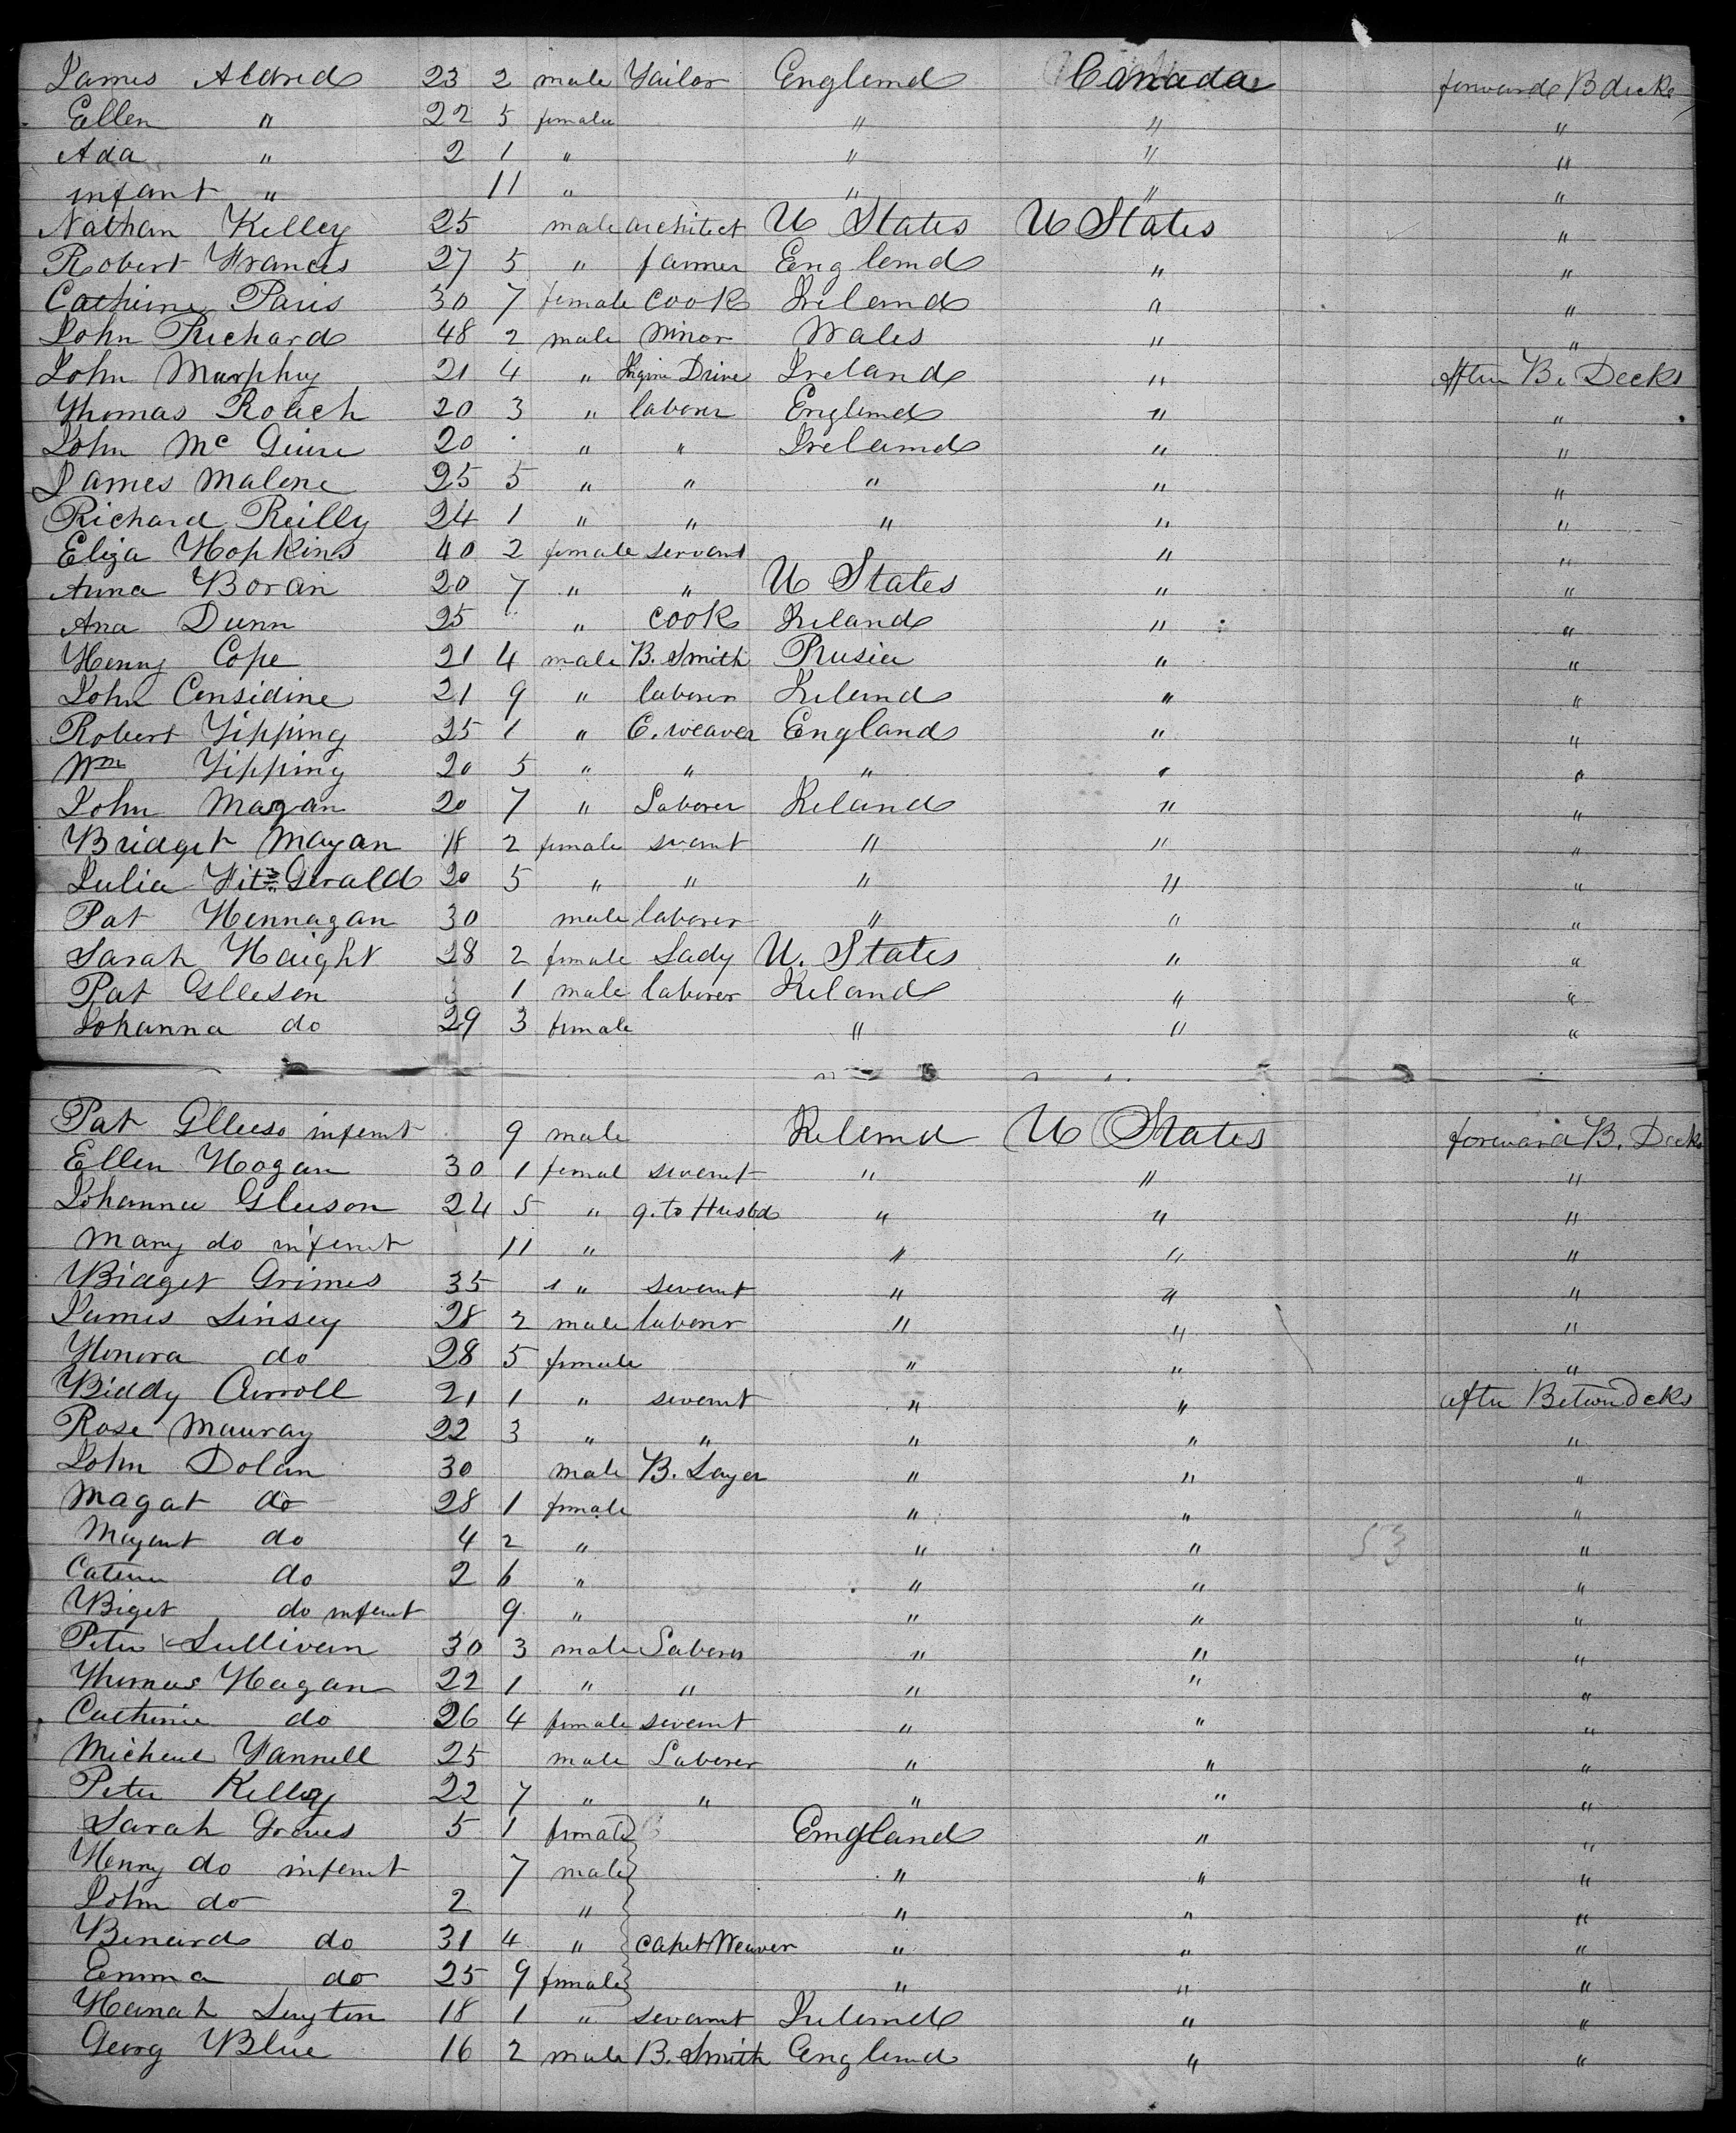 James Aldred 23 2 male Tailor England Canada forward B decks
Ellen " 22 5 female " " "
Ada " 2 1 " " " "
infant " 11 " " " "
Nathan Kelley 25 male architect U States U States "
Robert Francis 27 5 " farmer England " "
Catherine Paris 30 7 female Cook Ireland " "
John Richard 48 2 male Minor Wales " "
John Murphy 21 4 " Engine Drive Ireland " After B. Decks
Thomas Roach 20 3 " laborer England " "
John Mc Guire 20 " " Ireland " "
James Malone 25 5 " " " " "
Richard Reilly 24 1 " " " " "
Eliza Hopkins 40 2 female servant " "
Anna Boran 20 7 " " U States " "
Ana Dunn 25 " cook Ireland " "
Henry Cope 21 4 male B. Smith Prusia " "
John Considine 21 9 " laborer Ireland " "
Robert Tipping 25 1 " C. weaver England " "
Wm Tipping 20 5 " " " " "
John Magan 20 7 " Laborer Ireland " "
Bridget Magan 18 2 female servant " " "
Julia Fitz Gerald 20 5 " " " " "
Pat Hennagan 30 male laborer " " "
Sarah Haight 28 2 female Lady U. States " "
Pat Glleson 1 male laborer Ireland " "
Johanna do 29 3 female " " "
Pat Glleeso infant 9 male Ireland U States forward B. Decks
Ellen Hogan 30 1 femal servant " " "
Johanna Gleeson 24 5 " g. to Husbd " " "
Mary do infant 11 " " " "
Bidget Grimes 35 1 " servant " " "
James Linsey 28 2 male laborer " " "
Honora do 28 5 female " " "
Biddy Carroll 21 1 " servant " " after Betwn Dcks
Rose Mauray 22 3 " " " " "
John Dolan 30 male B. Layer " " "
Magat do 28 1 female " " "
Magant do 4 2 " " " "
Catern do 2 6 " " " 53 "
Biget do infant 9 " " " "
Peter Sullivan 30 3 male Laborer " " "
Thomas Hagan 22 1 " " " " "
Catherine do 26 4 female servant " " "
Micheal Fannell 25 male Laborer " " "
Peter Kelly 22 7 " " " " "
Sarah Graves 5 1 female England " "
Henry do infant 7 male " " "
John do 2 " " " "
Benard do 31 4 " Capet Weaver " " "
Emma do 25 9 female " " "
Hanah Layton 18 1 " servant Ireland " "
Georg Blue 16 2 male B. Smith England " "